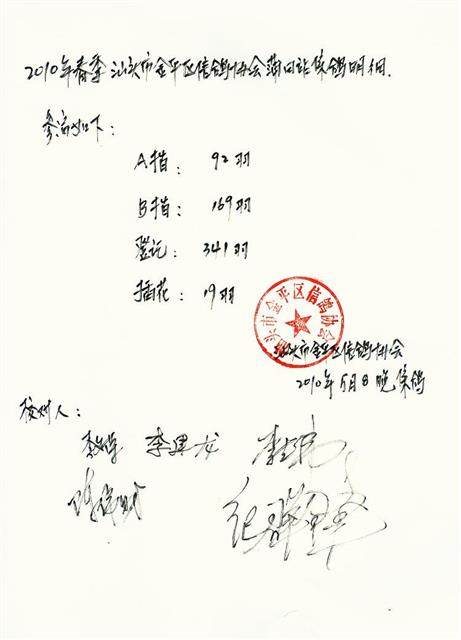 2010年春季汕头市金平区信鸽协会莆田站集鸽明细.
参赛如下：
A指： 92羽
B指： 169羽
登记： 341羽
插花： 19羽
汕头市金平区信鸽协会
汕头市金平区信鸽协会
2010年5月8晚集鸽
校对人：
李建龙